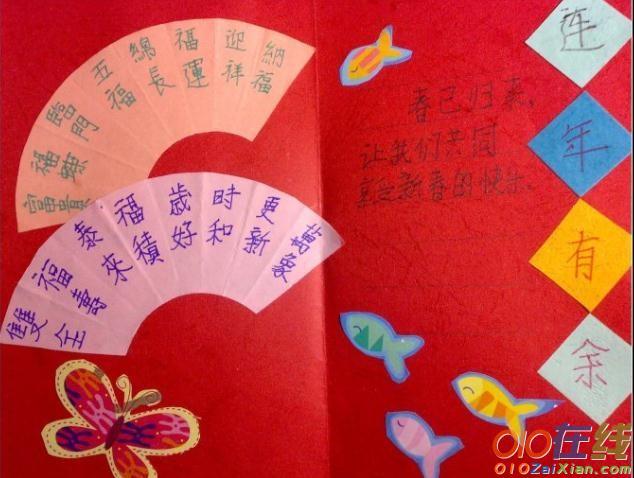 納福
迎祥
福運
綿長
五福
臨門
福
富貴
萬象
更新
时和
歲好
福積
泰來
福壽
雙全
春已归来,
让我们共同
享受新春的快乐.
连年有余
010在线
010ZaiXian.Com